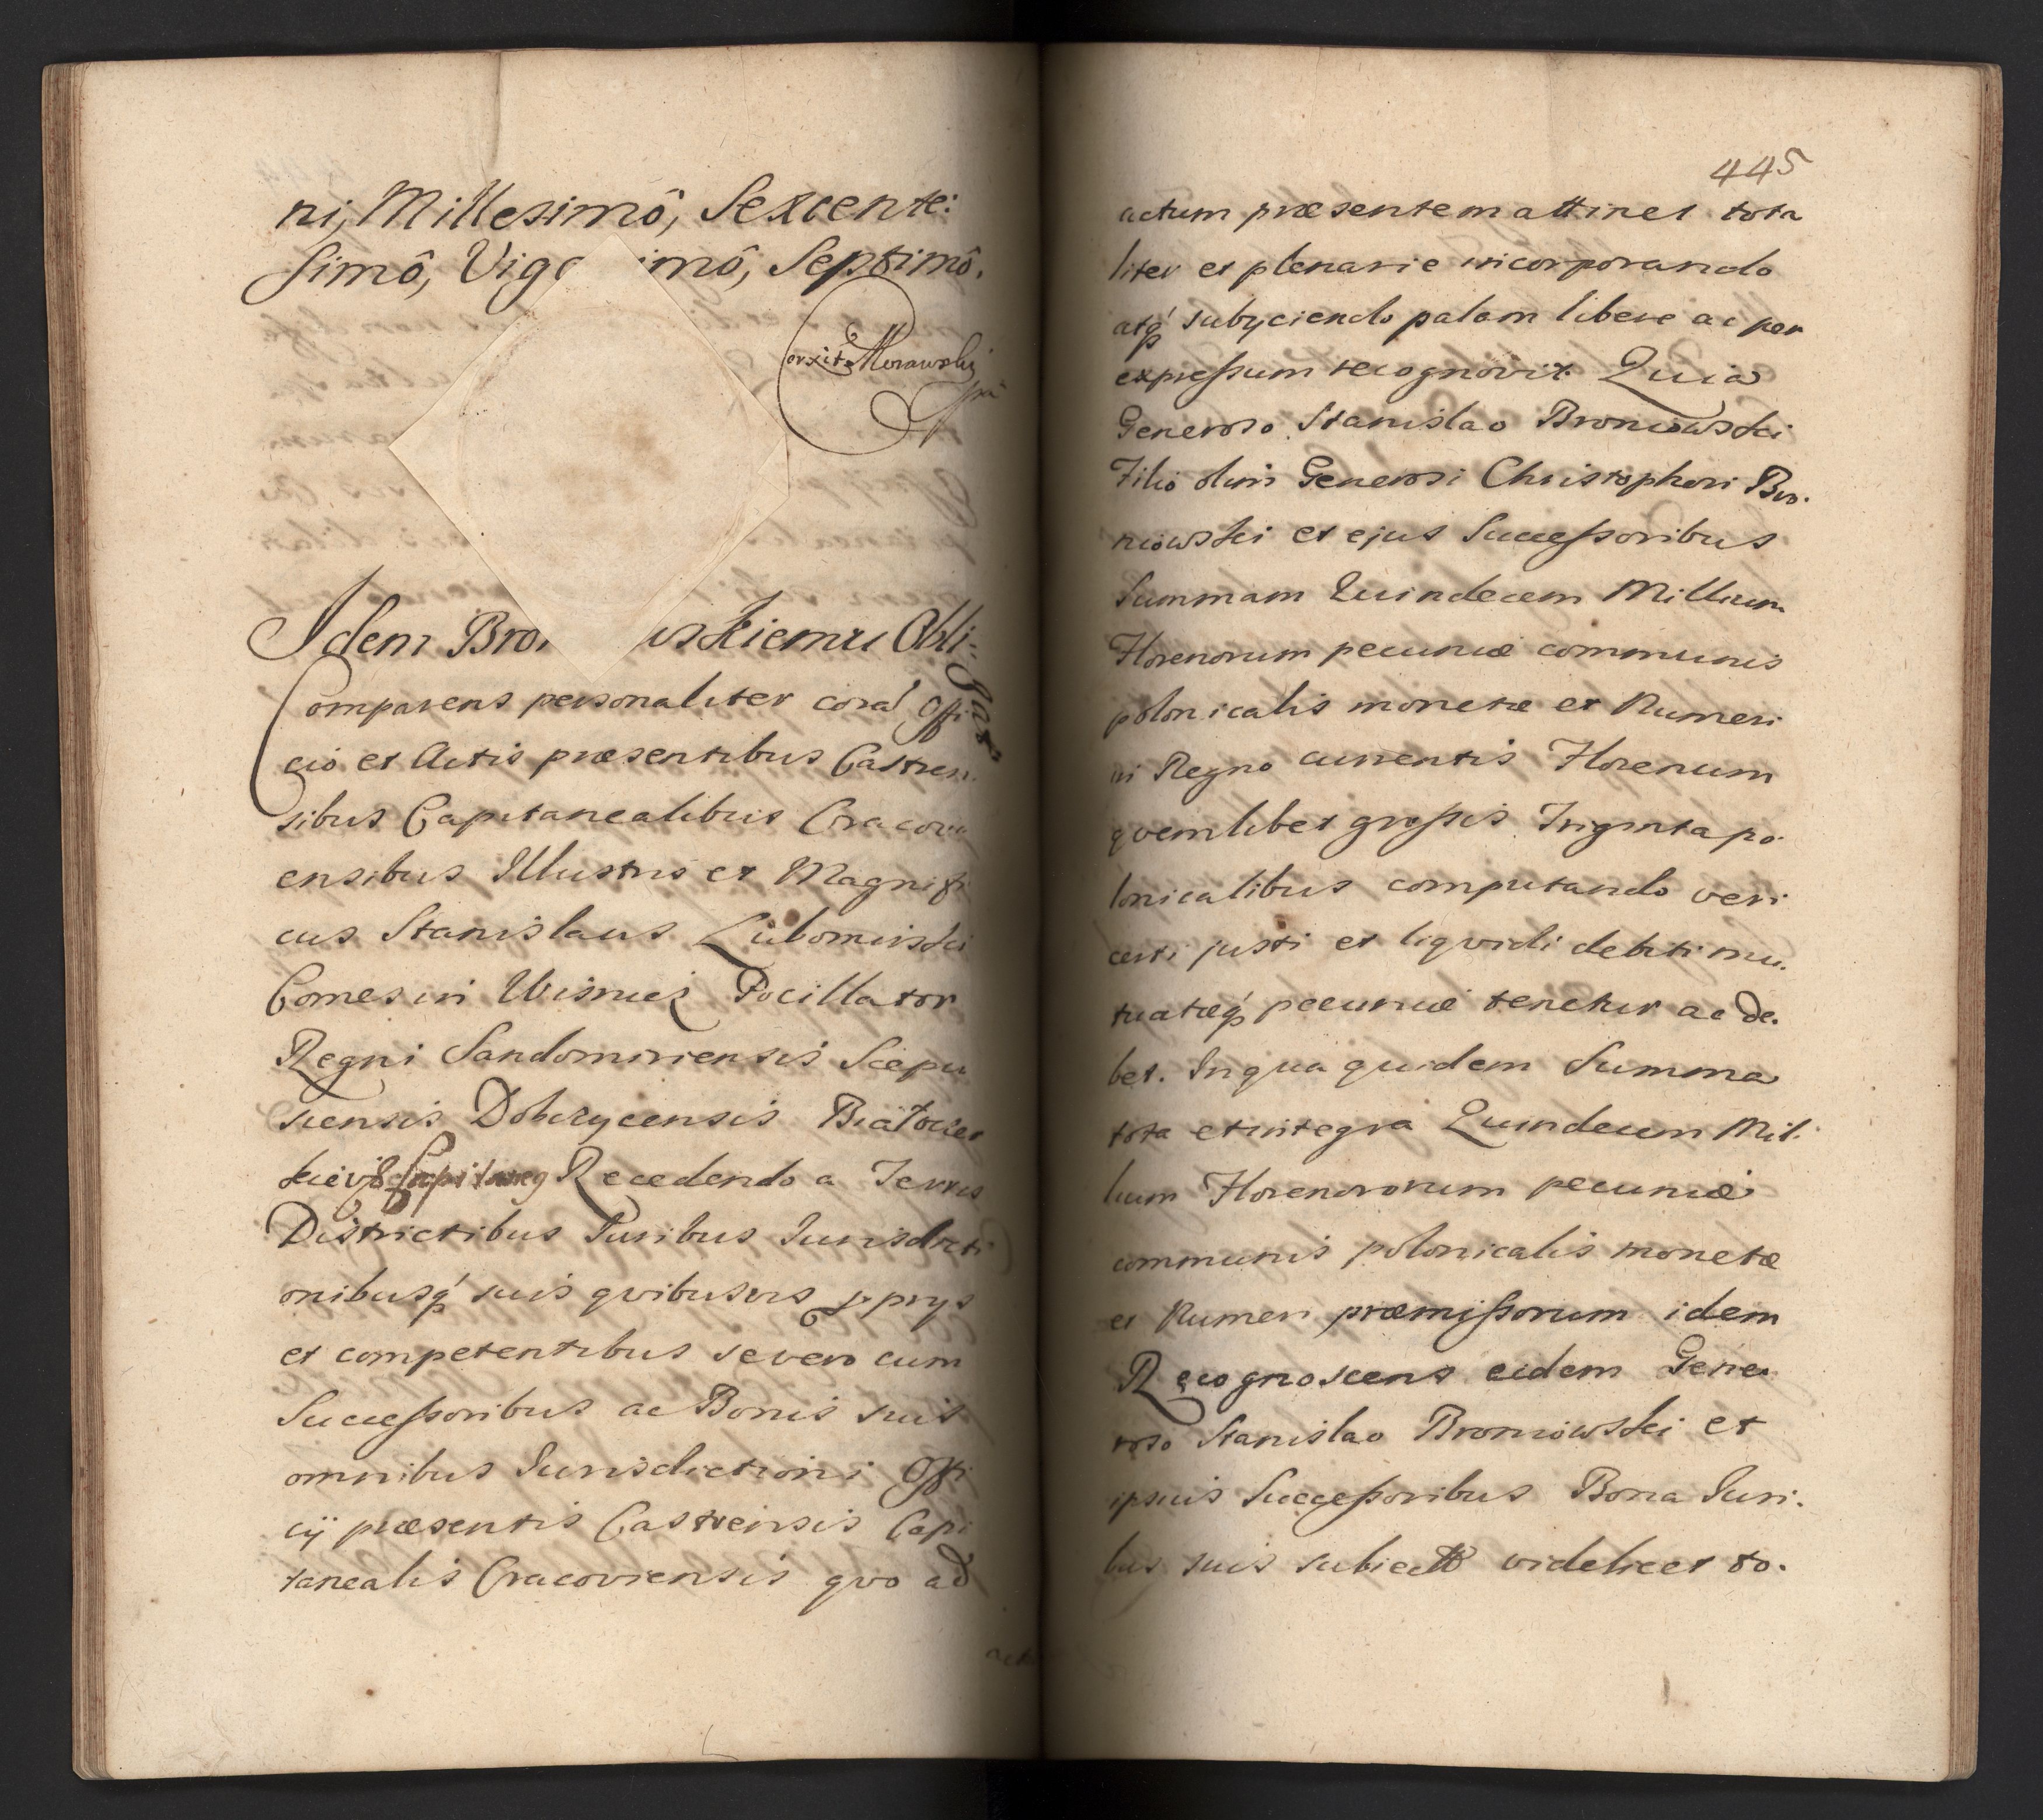 ni, Millesimô, Sexcente:
simô, Vige imô, Septimô.
Morawski
Idem Bron uskiemu Obli:
gat
Comparens personaliter coral Offi
cio et Actis præsentibus Castren.
sibus Capitanealibus Cracovi
ensibus Illustris et Magnifi
cus Stanislaus Lubomirski
Comes in Wisnicz Pocillator
Regni Sandomiriensis Scepu
siensis Dobczycensis
Capitaneg Recedendo a Terris
Districtibus Juribus Jurisdicti
onibusq́ suis qvibusvis pprys
et competentibus se vero cum
Successoribus ac Bonis suis
omnibus Jurisdictioni Offi
cÿ præsentis Castrensis Capi
tanealis Cracoviensis qvo ad
445
actum præsentem attinet tota
liter et plenarie incorporando
atq́ subyciendo palam libere ac per
expressum recognovit Quia
Generoso Stanislao Broniowski
Filio olim Generosi Christophori Bro.
niowski et ejus Successoribus
Summam Quindecem Millium
Florenorum pecuniæ communis
polonicalis monetæ et Numeri
in Regno currentis Florenum
qvemlibet grossis Triginta po.
lonicalibus computando veri
certi justi et liqvidi debiti mu.
tuatæq́ pecuniæ tenetur ac de.
bet. In qua quidem Summa
tota et integra Quindecem Mil.
lium Florenororum pecuniæ
communis polonicalis monetæ
et Numeri præmissorum idem
Recognoscens eidem Gene
roso Stanislao Broniowski et
ipsius Successoribus Bona Juri.
bus suis subiecta videlicet to.